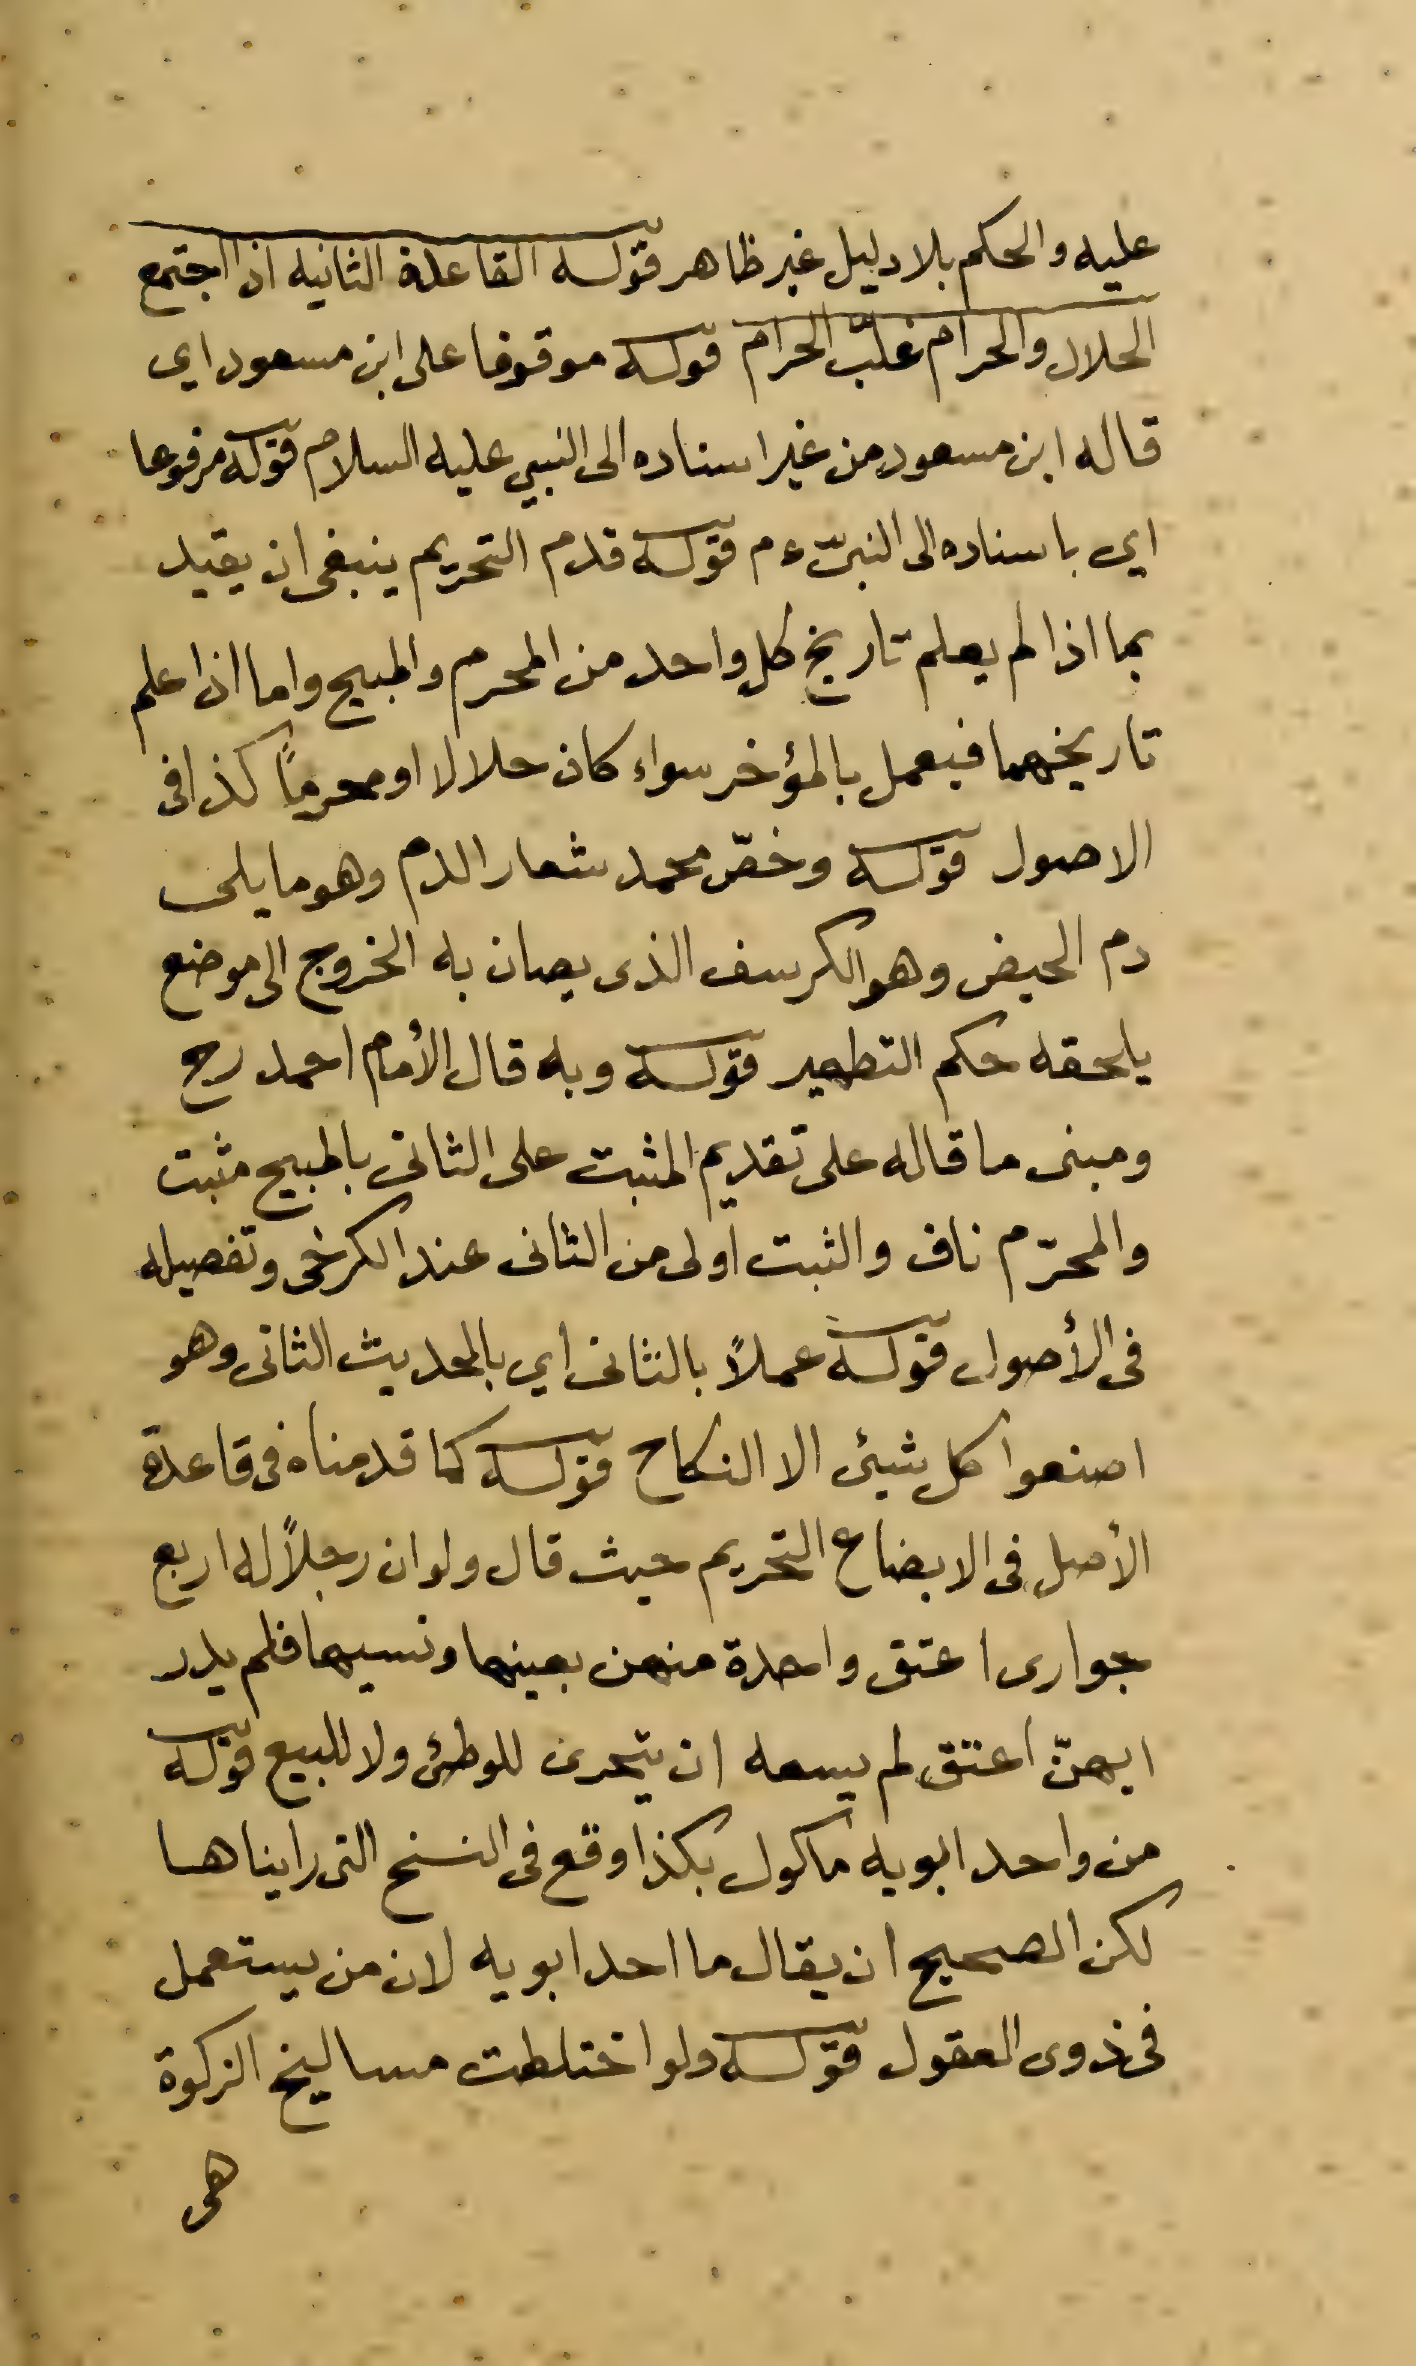 عليه والحكم بلا دليل غير ظاهر قوله القاعدة الثانيه اذا اجتمع
الحلال والحرام غلّب الحرام قوله موقوفا على ابن مسعود اي
قاله ابن مسعود من غير اسناده الى النبي عليه السلام قوله مرفوعا
اي باسناده الى النبىّ ءم قوله قدم التحريم ينبغى ان يقيد
بما اذا لم يعلم تاريخ كل واحد من المحرم والمبيح واما اذا علم
تاريخهما فيعمل بالمؤخر سواء كان حلالا او محرمًا كذا فى
الاصول قوله وخصّ محمد شعار الدم وهو ما يلى
دم الحيض وهو الكرسف الذى يصان به الخروج الى موضع
يلحقه حكم التطهير قوله وبه قال الأمام احمد رح
ومبنى ما قاله على تقديم المثبت على الثانى بالمبيح مثبت
والمحرّم ناف والثبت اولى من الثانى عند الكرخى وتفصيله
فى الأصول قوله عملاً بالثانى اي بالحديث الثانى وهو
اصنعوا كل شيئ الا النكاح قوله كما قدمناه فى قاعدة
الأصل فى الابضاع التحريم حيث قال ولو ان رجلاً له اربع
جوارى اعتق واحدة منهن بعينها ونسيها فلم يدر
ايهنّ اعتق لم يسعه ان يتحرى للوطئ ولا للبيع قوله
من واحد ابويه ماكول بكذا وقع فى النسخ التى رايناها
لكن الصحيح ان يقال ما احد ابويه لان من يستعمل
فى ذوى العقول قوله ولو اختلطت مساليخ الزكوة
هى